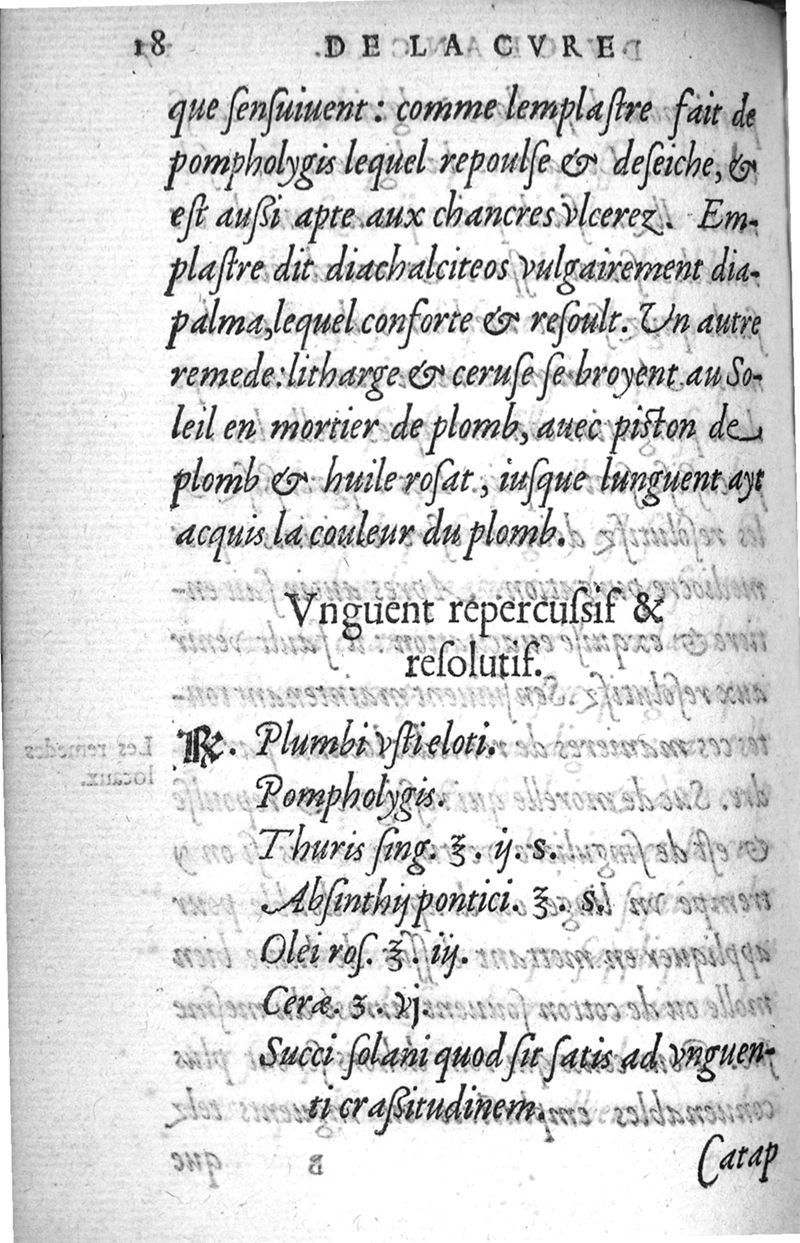 18 DE LA CVRE
que ſenſuiuent : comme lemplaſtre fait de
pompholygis lequel repoulſe & deſeiche, &
eſt auſſi apte aux chancres vlcerez. Em-
plaſtre dit diachalciteos vulgairement dia-
palma, lequel conforte & reſoult. Un autre
remede: litharge & ceruſe ſe broyent au So-
leil en mortier de plomb, auec piſton de
plomb & huile roſat, iuſque lunguent ayt
acquis la couleur du plomb.
Vnguent repercuſſif &
reſolutif.
℞. Plumbi vſti eloti.
Pompholygis.
Thuris ſing. ℥. ij. s.
Abſinthij pontici. ℥. s.
Olei roſ. ℥. iij.
Ceræ. ʒ. vj.
Succi ſolani quod ſit ſatis ad vnguen-
ti craſſitudinem.
Catap